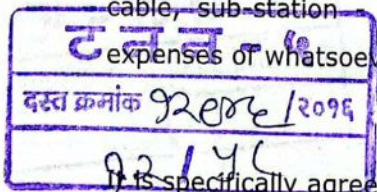 cable, sub-station -
ट न न - ७
expenses or whatsoev
दस्त क्रमांक /२०१६
It is specifically agree